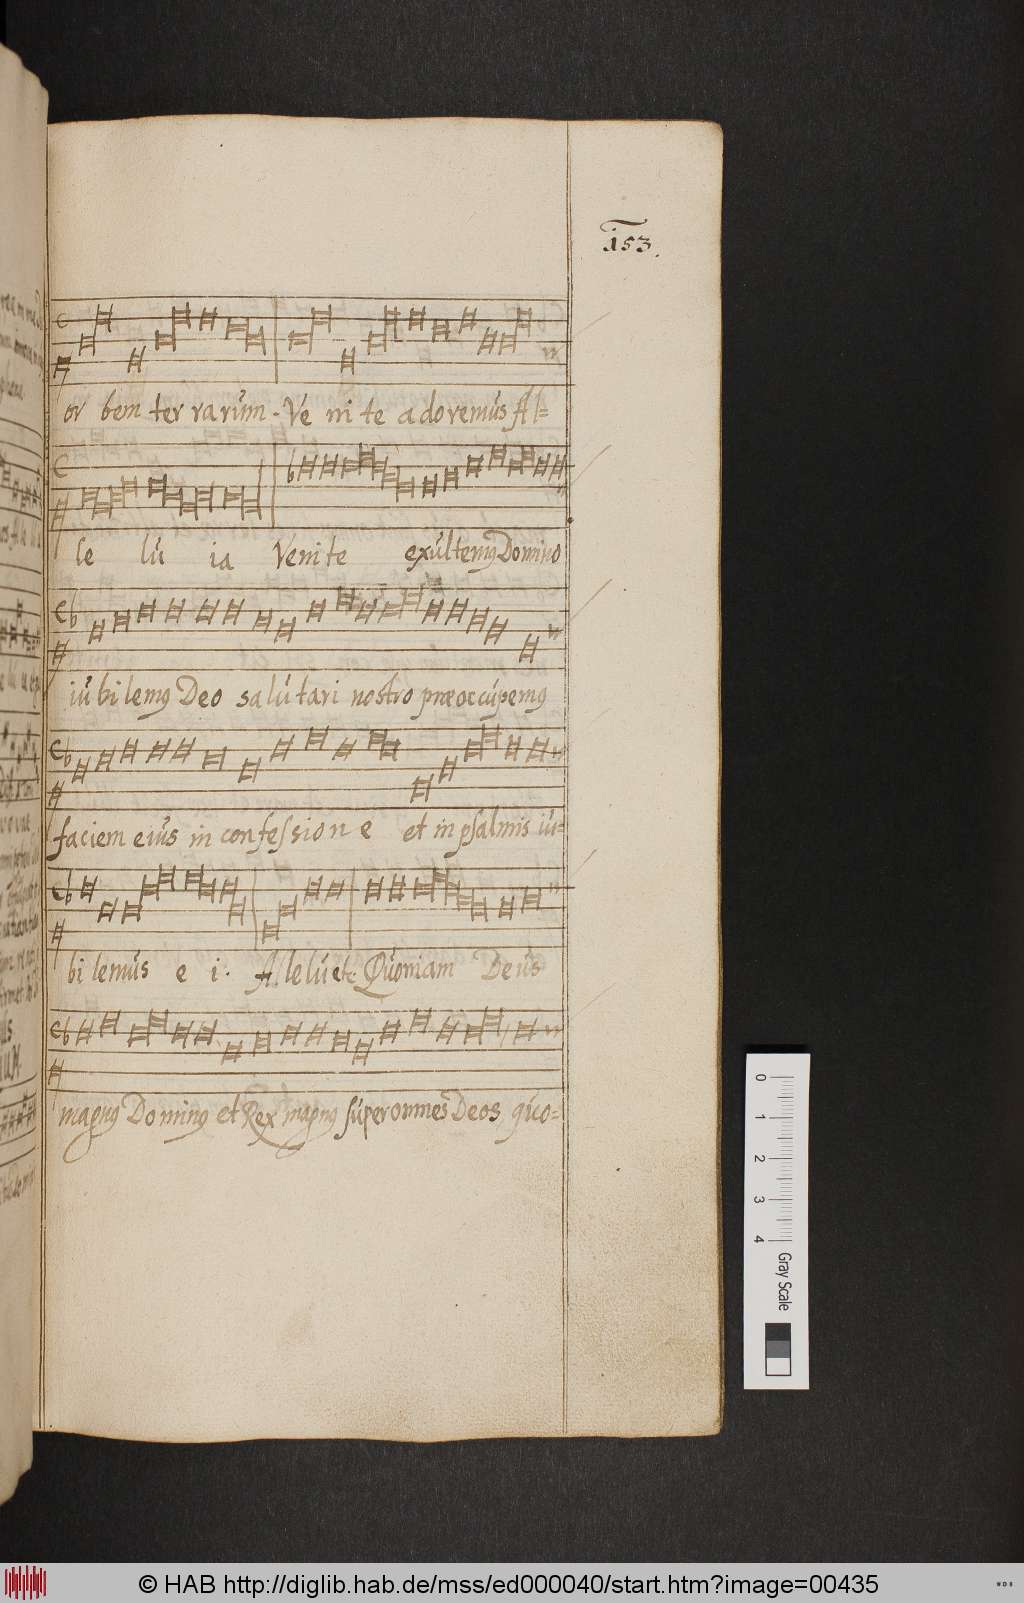 153.
or bem ter rarum. Ve ni te adoremus Al=
le lu ia Veni te exultemus Domino
iu bi lemus Deo salutari nostro præoccupemus
faciem eius in confessione et in psalmis iu=
bi lemus e i. A. leluetc Quoniam Deus
magnus Dominus et Rex magnus super omnes Deos, quo=
0 1 2 3 4 Gray Scale
© HAB http://diglib.hab.de/mss/ed000040/start.htm?image=00435